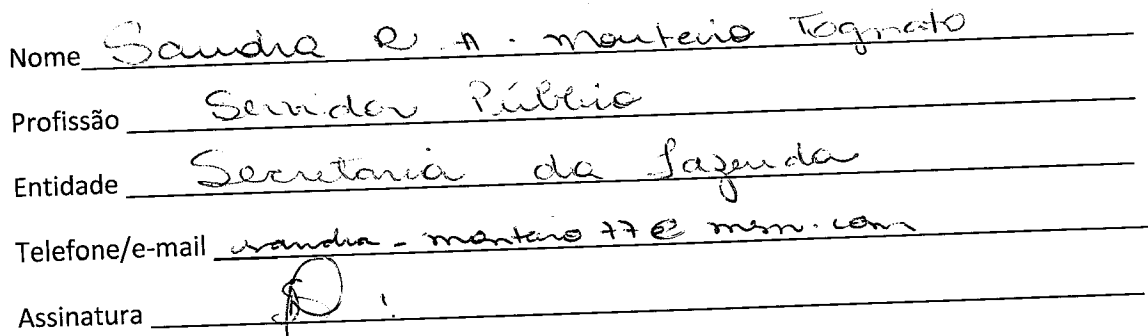 Nome Sandra R. A. Monteiro Tognato
Profissão Servidor Público
Entidade Secretaria da Fazenda
Telefone/e-mail sandra-monteiro77@msn.com
Assinatura